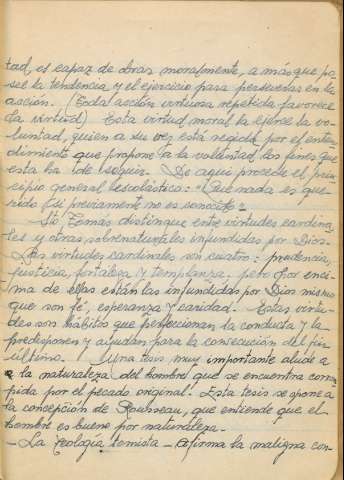 tad, es capaz de obrar moralmente, a más que po-
see la tendencia y el ejercicio para perseverar en la
acción. (Toda acción virtuosa repetida favorece
la virtud) Esta virtud moral la ejerce la vo-
luntad, quien a su vez está regida por el enten-
dimiento que propone a la voluntad los fines que
esta ha de seguir. De aquí procede el prin-
cipio general escolástico: "Que nada es que-
rido si previamente no es conocido"
Sto Tomás distingue entre virtudes cardina-
les y otras sobrenaturales infundidas por Dios.
Las virtudes cardinales son cuatro: prudencia,
justicia, fortaleza y templanza. pero por enci-
ma de ellas están las infundidas por Dios mismo
que son fé, esperanza y caridad. Estas virtu-
des son hábitos que perfeccionan la conducta y la
predisponen y ayudan para la consecución del fin
último. Una tesis muy importante alude a
la naturaleza del hombre que se encuentra corrom-
pida por el pecado original. Esta tesis se opone a
la concepción de Rousseau, que entiende que el
hombre es bueno por naturaleza.
- La teología tomista - afirma la maligna con-